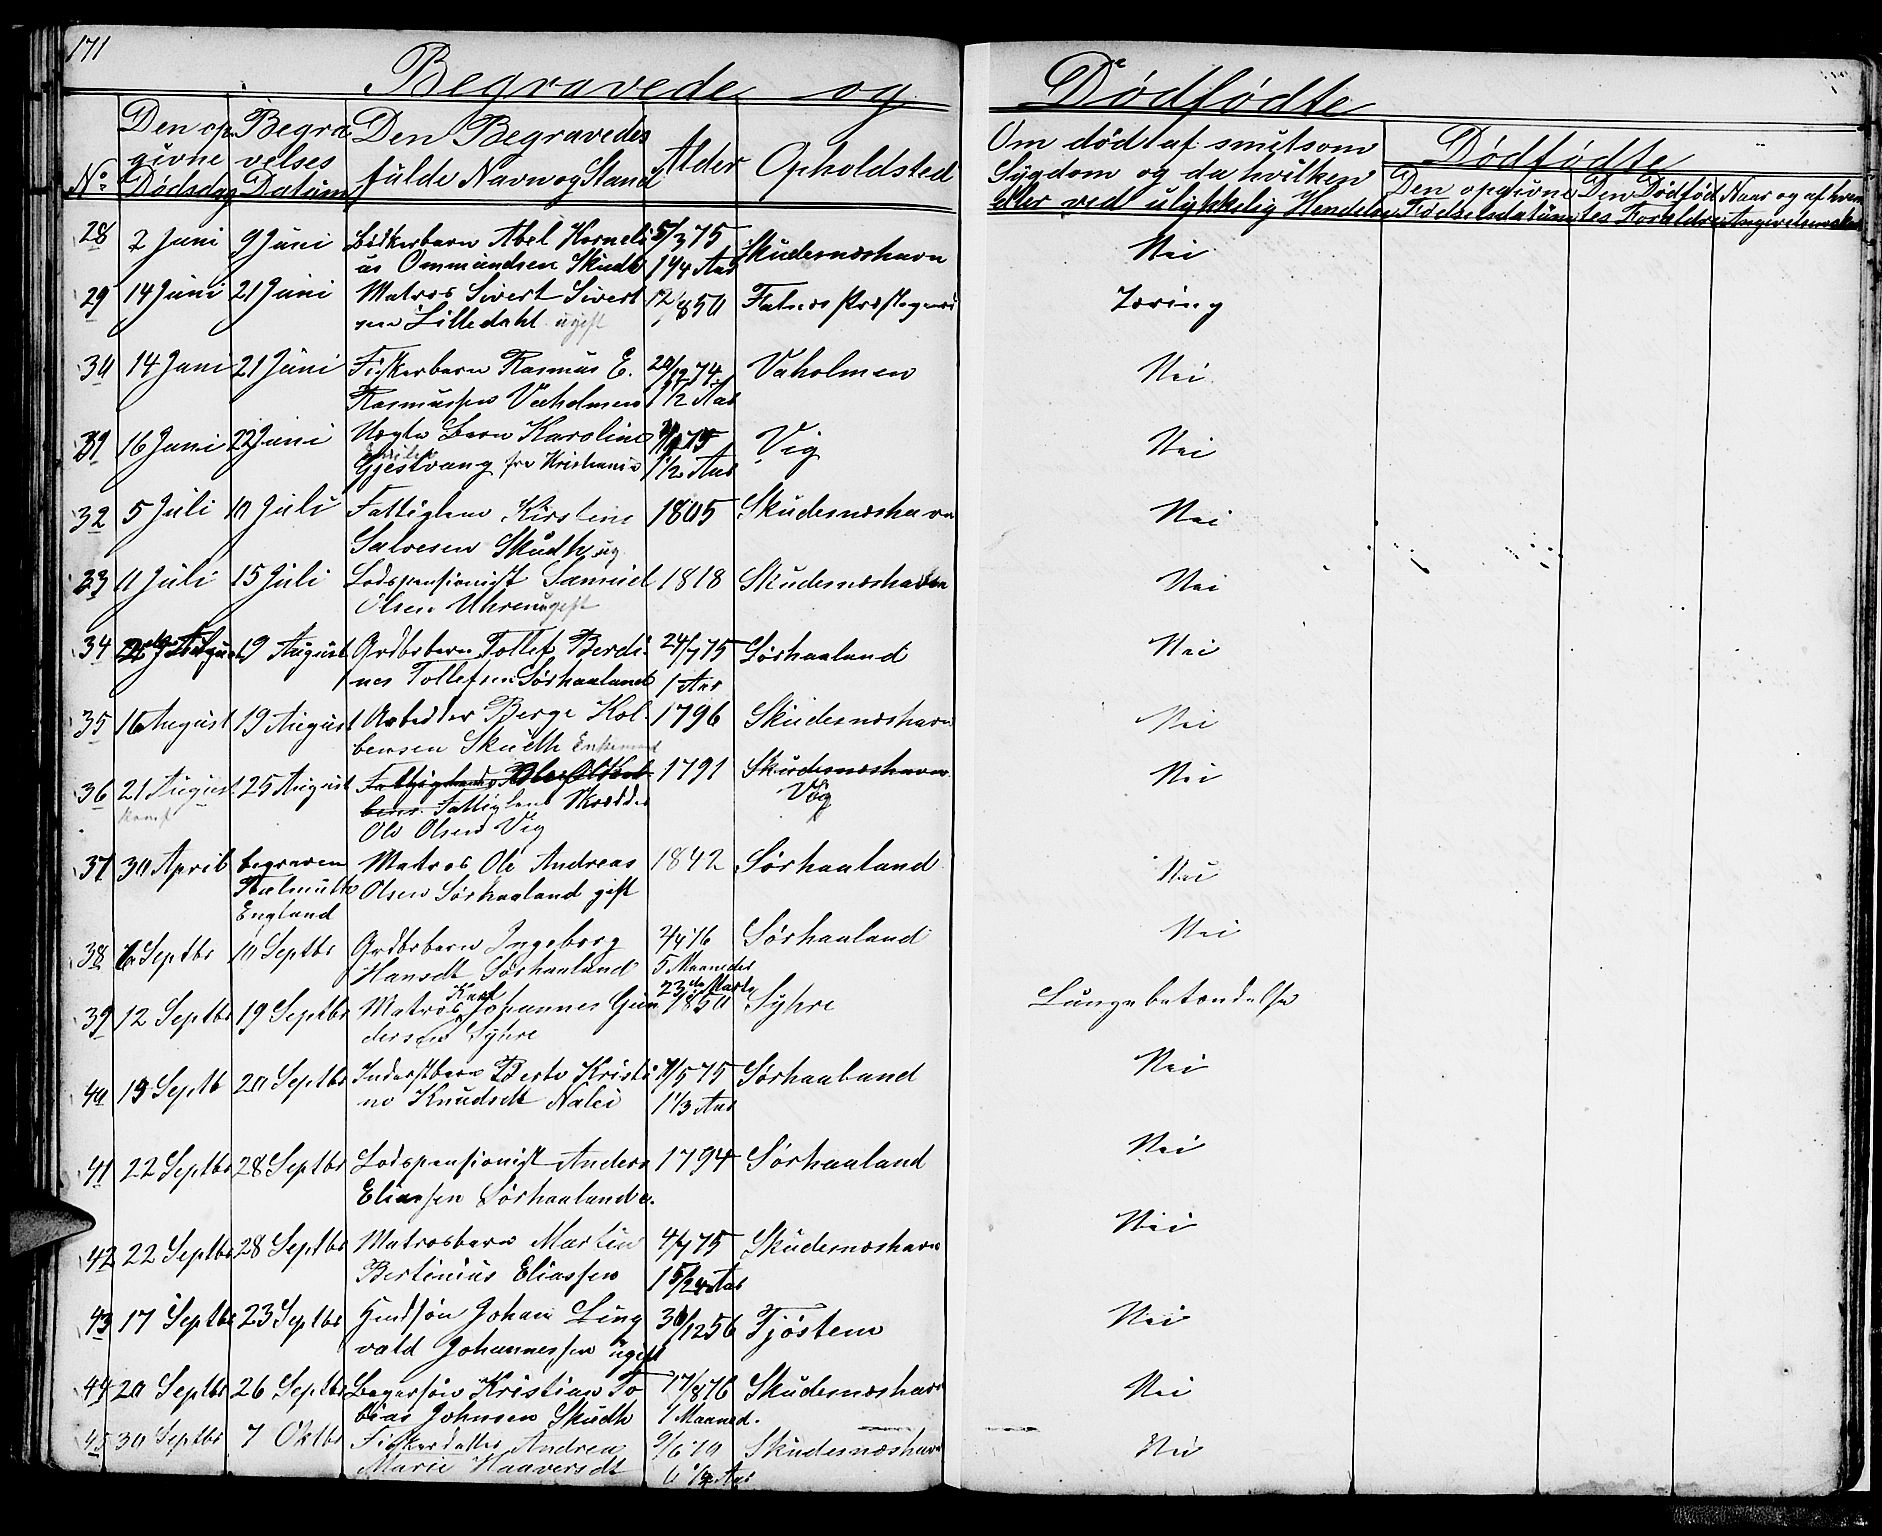 171
Begravede og Dødfødte
No: Den opgivne Dødsdag Begravelses Datum Den Begravedes fulde Navn og Stand Alder Opholdsted Om død af smitsom Sygdom og da hvilken eller ved ulykkelig Hendelse Dødfødte
Den opgivne Fødselsdatum Den Dødfødtes Foreldre Naar og af hvem
28 2 Juni 9 Juni Bødkerbarn Abel Korneli 5/3 75 Skudesnæshavn Nei
us Ommundsen Skudh 1 1/4 Aar
29 14 Juni 21 Juni Matros Sivert Sivert 12/ 850 Præstegjeld Tæring
sen Lilledahl ugift
30 14 Juni 21 Juni Fiskerbarn Rasmus E. 20/12 74 Vaholmen Nei
Rasmussen Vaholmen 1 1/2 Aar
31 16 Juni 22 Juni Uægte Barn Karoline 75 Vig Nei
Gjestvang fra Kristiania 1 1/2 Aar
32 5 Juli 10 Juli Fattiglem Kirstine 1805 Skudesnæshavn Nei
Salvesen Skudh ug
33 11 Juli 15 Juli Lodspensionist Samuel 1818 Skudesnæshavn Nei
Olsen Uhren ugift
34 August 19 August Grdbrbarn Tollef Berdi 24/7 75 Sørhaaland Nei
nes Tollefsen Sørhaaland 1 Aar
35 16 August 19 August Arbeider Berge Kol 1796 Skudesnæshavn Nei
bensen Skudh Enkemand
36 21 August 25 August 1791 Skudesnæshavn Nei
Fattiglem Skrædder Vig
Ole Olsen Vig
37 30 April begraven Matros Ole Andreas 1842 Sørhaaland Nei
Olsen Sørhaaland gift
England
38 6 Septbr 10 Septbr Grdbrbarn Ingeborg 4/4 76 Sørhaaland Nei
Hansdt Sørhaaland 5 Maaneder
39 12 Septbr 19 Septbr Matros Karl Johannes Gun 23de Marts 1850 Syhre Lungebetændelse
dersen Syhre
40 19 Septb 20 Septbr Inderstbarn Berte Kristi /5 75 Sørhaaland Nei
ne Knudsdt Nalei 1 1/3 Aar
41 22 Septbr 28 Septbr Lodspensionist Anders 1794 Sørhaaland Nei
Eliassen Sørhaaland e.
42 22 Septbr 28 Septbr Matrosbarn Martin 4/7 75 Skudesnæshavn Nei
Bertinius Eliassen 1 5/24 Aar
43 17 Septbr 23 Septbr Johan Ling 30/12 56 Tjøstem Nei
vald Johannessen ugift
44 20 Septbr 26 Septbr Bagersøn Kristian To 17/8 76 Skudesnæshavn Nei
bias Johnsen Skudh 1 Maaned.
45 30 Septbr 7 Oktbr Fiskerdatter Andrea 9/6 70 Skudesnæshavn Nei
Marie Haaversdt 6 1/4 Aar